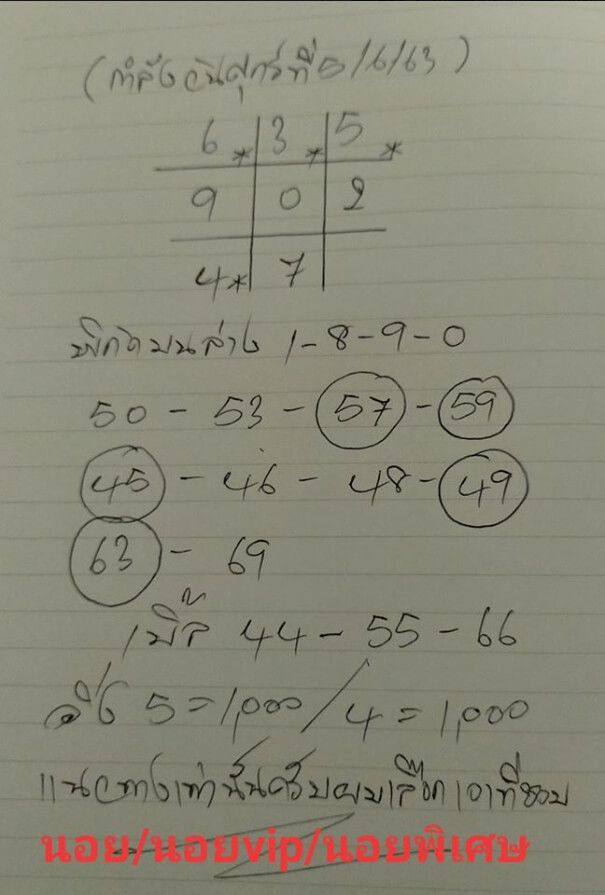 (กำลังวันศุกร์ที่5/6/63)
6* 3* 5*
9 0 2
4* 7
พิกัดบนล่าง 1-8-9-0
50 - 53 - 57 - 59
45 - 46 - 48 - 49
63 - 69
เบิ้ล 44 - 55 - 66
วิ่ง 5 = 1,000 / 4 = 1,000
แนวทางเท่านั้นครับผมเลือกเอาที่ชอบ
นอย/นอยvip/นอยพิเศษ